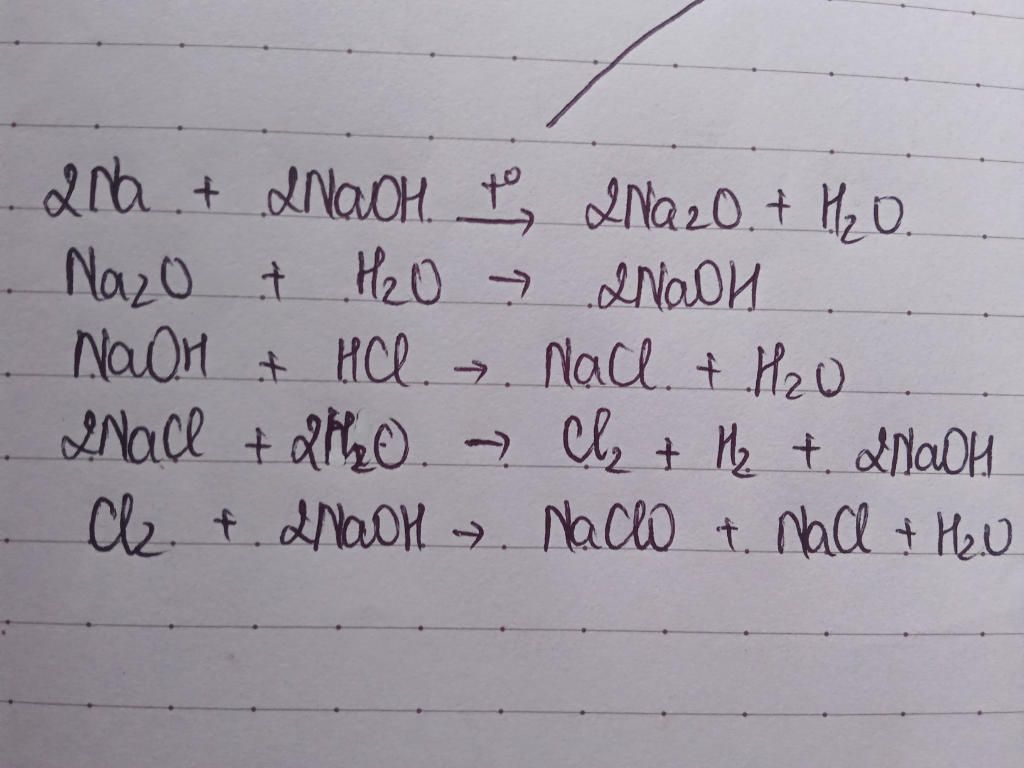 2Na + 2NaOH t° → 2Na2O + H2O
Na2O + H2O → 2NaOH
NaOH + HCl → NaCl + H2O
2NaCl + 2H2O → Cl2 + H2 + 2NaOH
Cl2 + 2NaOH → NaClO + NaCl + H2O